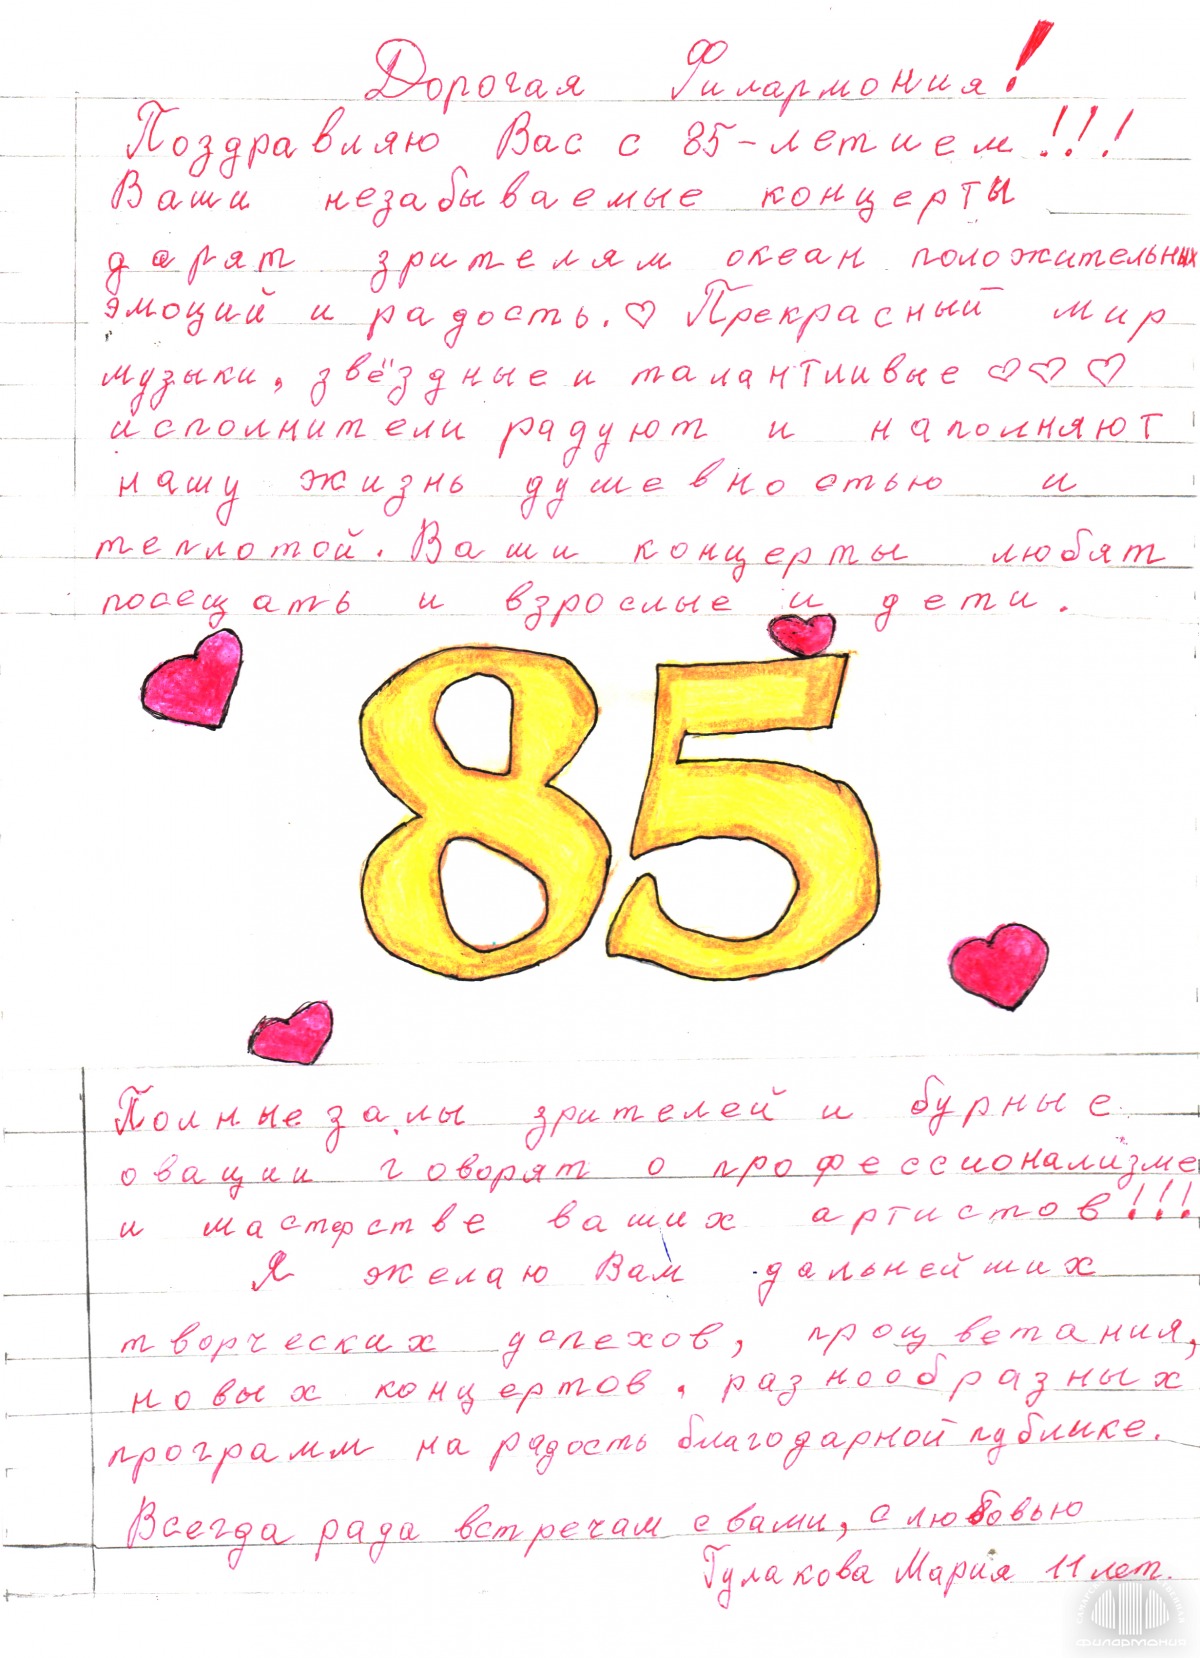 Дорогая Филармония!
Поздравляю Вас с 85-летием!!!
Ваши незабываемые концерты
дарят зрителям океан положительных
эмоций и радость.♡ Прекрасный мир
музыки, звёздные и талантливые ♡♡♡
исполнители радуют и наполняют
нашу жизнь душевностью и
теплотой. Ваши концерты любят
посещать и взрослые и дети.
85
Полные залы зрителей и бурные
овации говорят о профессионализме
и мастерстве ваших артистов!!!
Я желаю Вам дальнейших
творческих успехов, процветания,
новых концертов, разнообразных
программ на радость благодарной публике.
Всегда рада встречам с вами, с любовью
Гулакова Мария 11 лет.
филармония